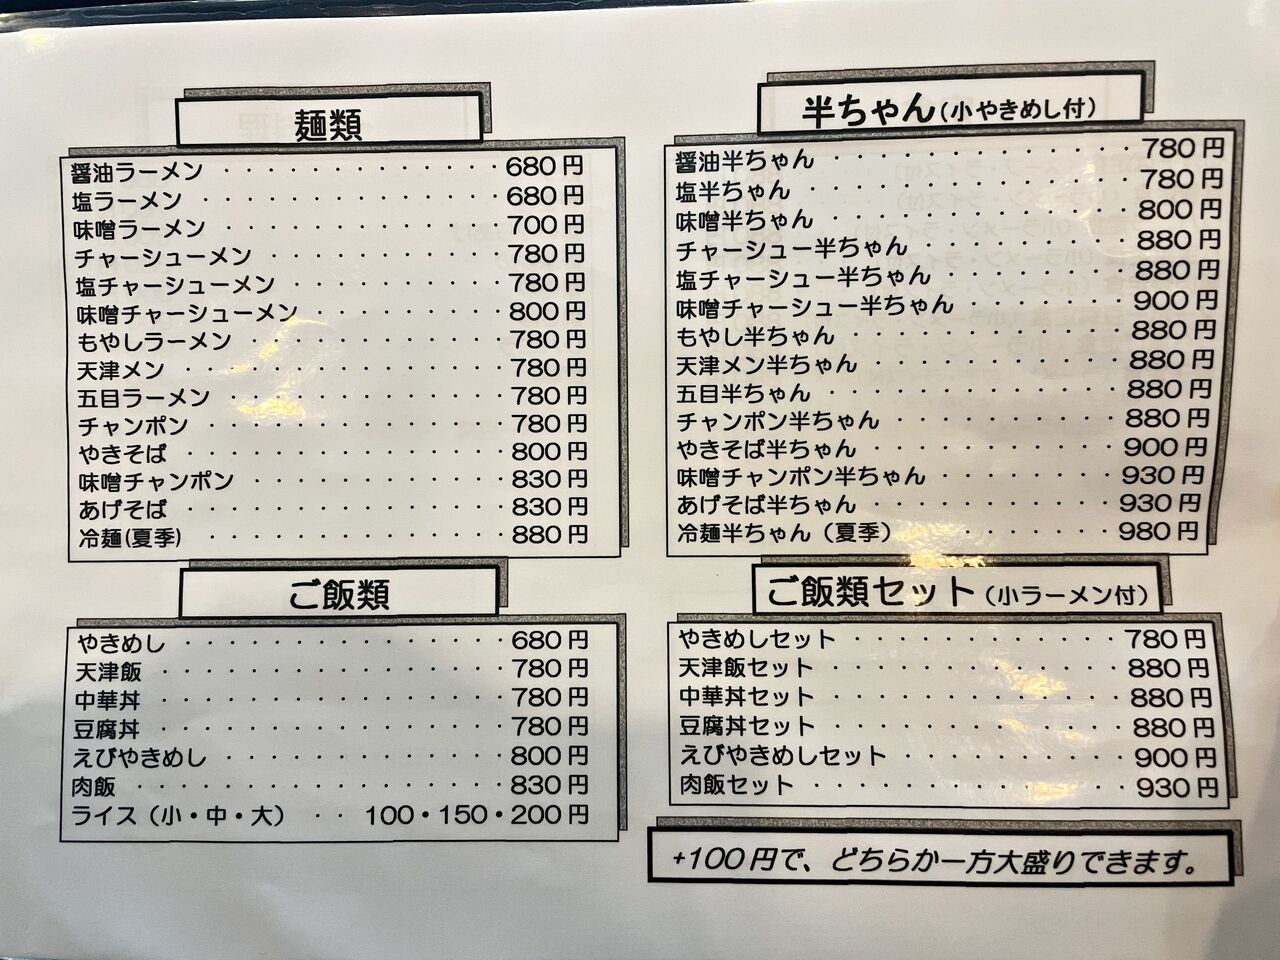 麺類
醤油ラーメン ・・・・・・・・・・・・・・ 680円
塩ラーメン ・・・・・・・・・・・・・・ 680円
味噌ラーメン ・・・・・・・・・・・・・ 700円
チャーシューメン ・・・・・・・・・・・ 780円
塩チャーシューメン ・・・・・・・・・・ 780円
味噌チャーシューメン ・・・・・・・・・ 800円
もやしラーメン ・・・・・・・・・・・・ 780円
天津メン ・・・・・・・・・・・・・・ 780円
五目ラーメン ・・・・・・・・・・・・・ 780円
チャンポン ・・・・・・・・・・・・・・ 780円
やきそば ・・・・・・・・・・・・・・ 800円
味噌チャンポン ・・・・・・・・・・・・ 830円
あげそば ・・・・・・・・・・・・・・ 830円
冷麺(夏季) ・・・・・・・・・・・・・・ 880円
ご飯類
やきめし ・・・・・・・・・・・・・・ 680円
天津飯 ・・・・・・・・・・・・・・・ 780円
中華丼 ・・・・・・・・・・・・・・・ 780円
豆腐丼 ・・・・・・・・・・・・・・・ 780円
えびやきめし ・・・・・・・・・・・・・ 800円
肉飯 ・・・・・・・・・・・・・・・・ 830円
ライス（小・中・大） ・・ 100・150・200円
半ちゃん（小やきめし付）
醤油半ちゃん ・・・・・・・・・・・・ 780円
塩半ちゃん ・・・・・・・・・・・・・ 780円
味噌半ちゃん ・・・・・・・・・・・・ 800円
チャーシュー半ちゃん ・・・・・・・・ 880円
塩チャーシュー半ちゃん ・・・・・・・ 880円
味噌チャーシュー半ちゃん ・・・・・・ 900円
もやし半ちゃん ・・・・・・・・・・・ 880円
天津メン半ちゃん ・・・・・・・・・・ 880円
五目半ちゃん ・・・・・・・・・・・・ 880円
チャンポン半ちゃん ・・・・・・・・・ 880円
やきそば半ちゃん ・・・・・・・・・・ 900円
味噌チャンポン半ちゃん ・・・・・・・ 930円
あげそば半ちゃん ・・・・・・・・・・ 930円
冷麺半ちゃん（夏季） ・・・・・・・・ 980円
ご飯類セット（小ラーメン付）
やきめしセット ・・・・・・・・・・・ 780円
天津飯セット ・・・・・・・・・・・・ 880円
中華丼セット ・・・・・・・・・・・・ 880円
豆腐丼セット ・・・・・・・・・・・・ 880円
えびやきめしセット ・・・・・・・・・ 900円
肉飯セット ・・・・・・・・・・・・・ 930円
+100円で、どちらか一方大盛りできます。